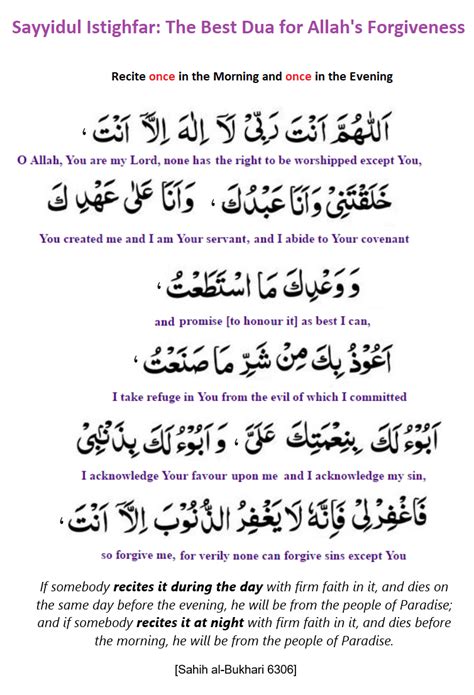 Sayyidul Istighfar: The Best Dua for Allah's Forgiveness
Recite once in the Morning and once in the Evening
اَللّٰهُمَّ اَنْتَ رَبِّيْ لَآ اِلٰهَ اِلَّآ اَنْتَ ،
O Allah, You are my Lord, none has the right to be worshipped except You,
خَلَقْتَنِيْ وَاَنَا عَبْدُكَ ، وَاَنَا عَلٰى عَهْدِكَ
You created me and I am Your servant, and I abide to Your covenant
وَوَعْدِكَ مَا اسْتَطَعْتُ ،
and promise [to honour it] as best I can,
اَعُوْذُ بِكَ مِنْ شَرِّ مَا صَنَعْتُ ،
I take refuge in You from the evil of which I committed
اَبُوْءُ لَكَ بِنِعْمَتِكَ عَلَيَّ ، وَاَبُوْءُ لَكَ بِذَنْبِيْ
I acknowledge Your favour upon me and I acknowledge my sin,
فَاغْفِرْلِيْ فَاِنَّهٗ لَا يَغْفِرُ الذُّنُوْبَ اِلَّآ اَنْتَ ،
so forgive me, for verily none can forgive sins except You
If somebody recites it during the day with firm faith in it, and dies on
the same day before the evening, he will be from the people of Paradise;
and if somebody recites it at night with firm faith in it, and dies before
the morning, he will be from the people of Paradise.
[Sahih al-Bukhari 6306]